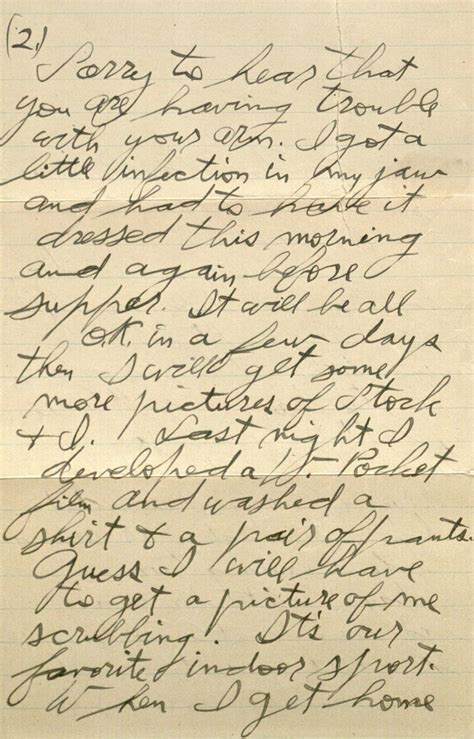 (2.)
Sorry to hear that
you are having trouble
with your arm. I got a
little infection in my jaw
and had to have it
dressed this morning
and again before
supper. It will be all
O.K. in a few days
then I will get some
more pictures of Stock
& I. Last night I
developed a V. Pocket
film and washed a
shirt & a pair of pants.
Guess I will have
to get a picture of me
scrubbing. It's our
favorite indoor sport.
When I get home